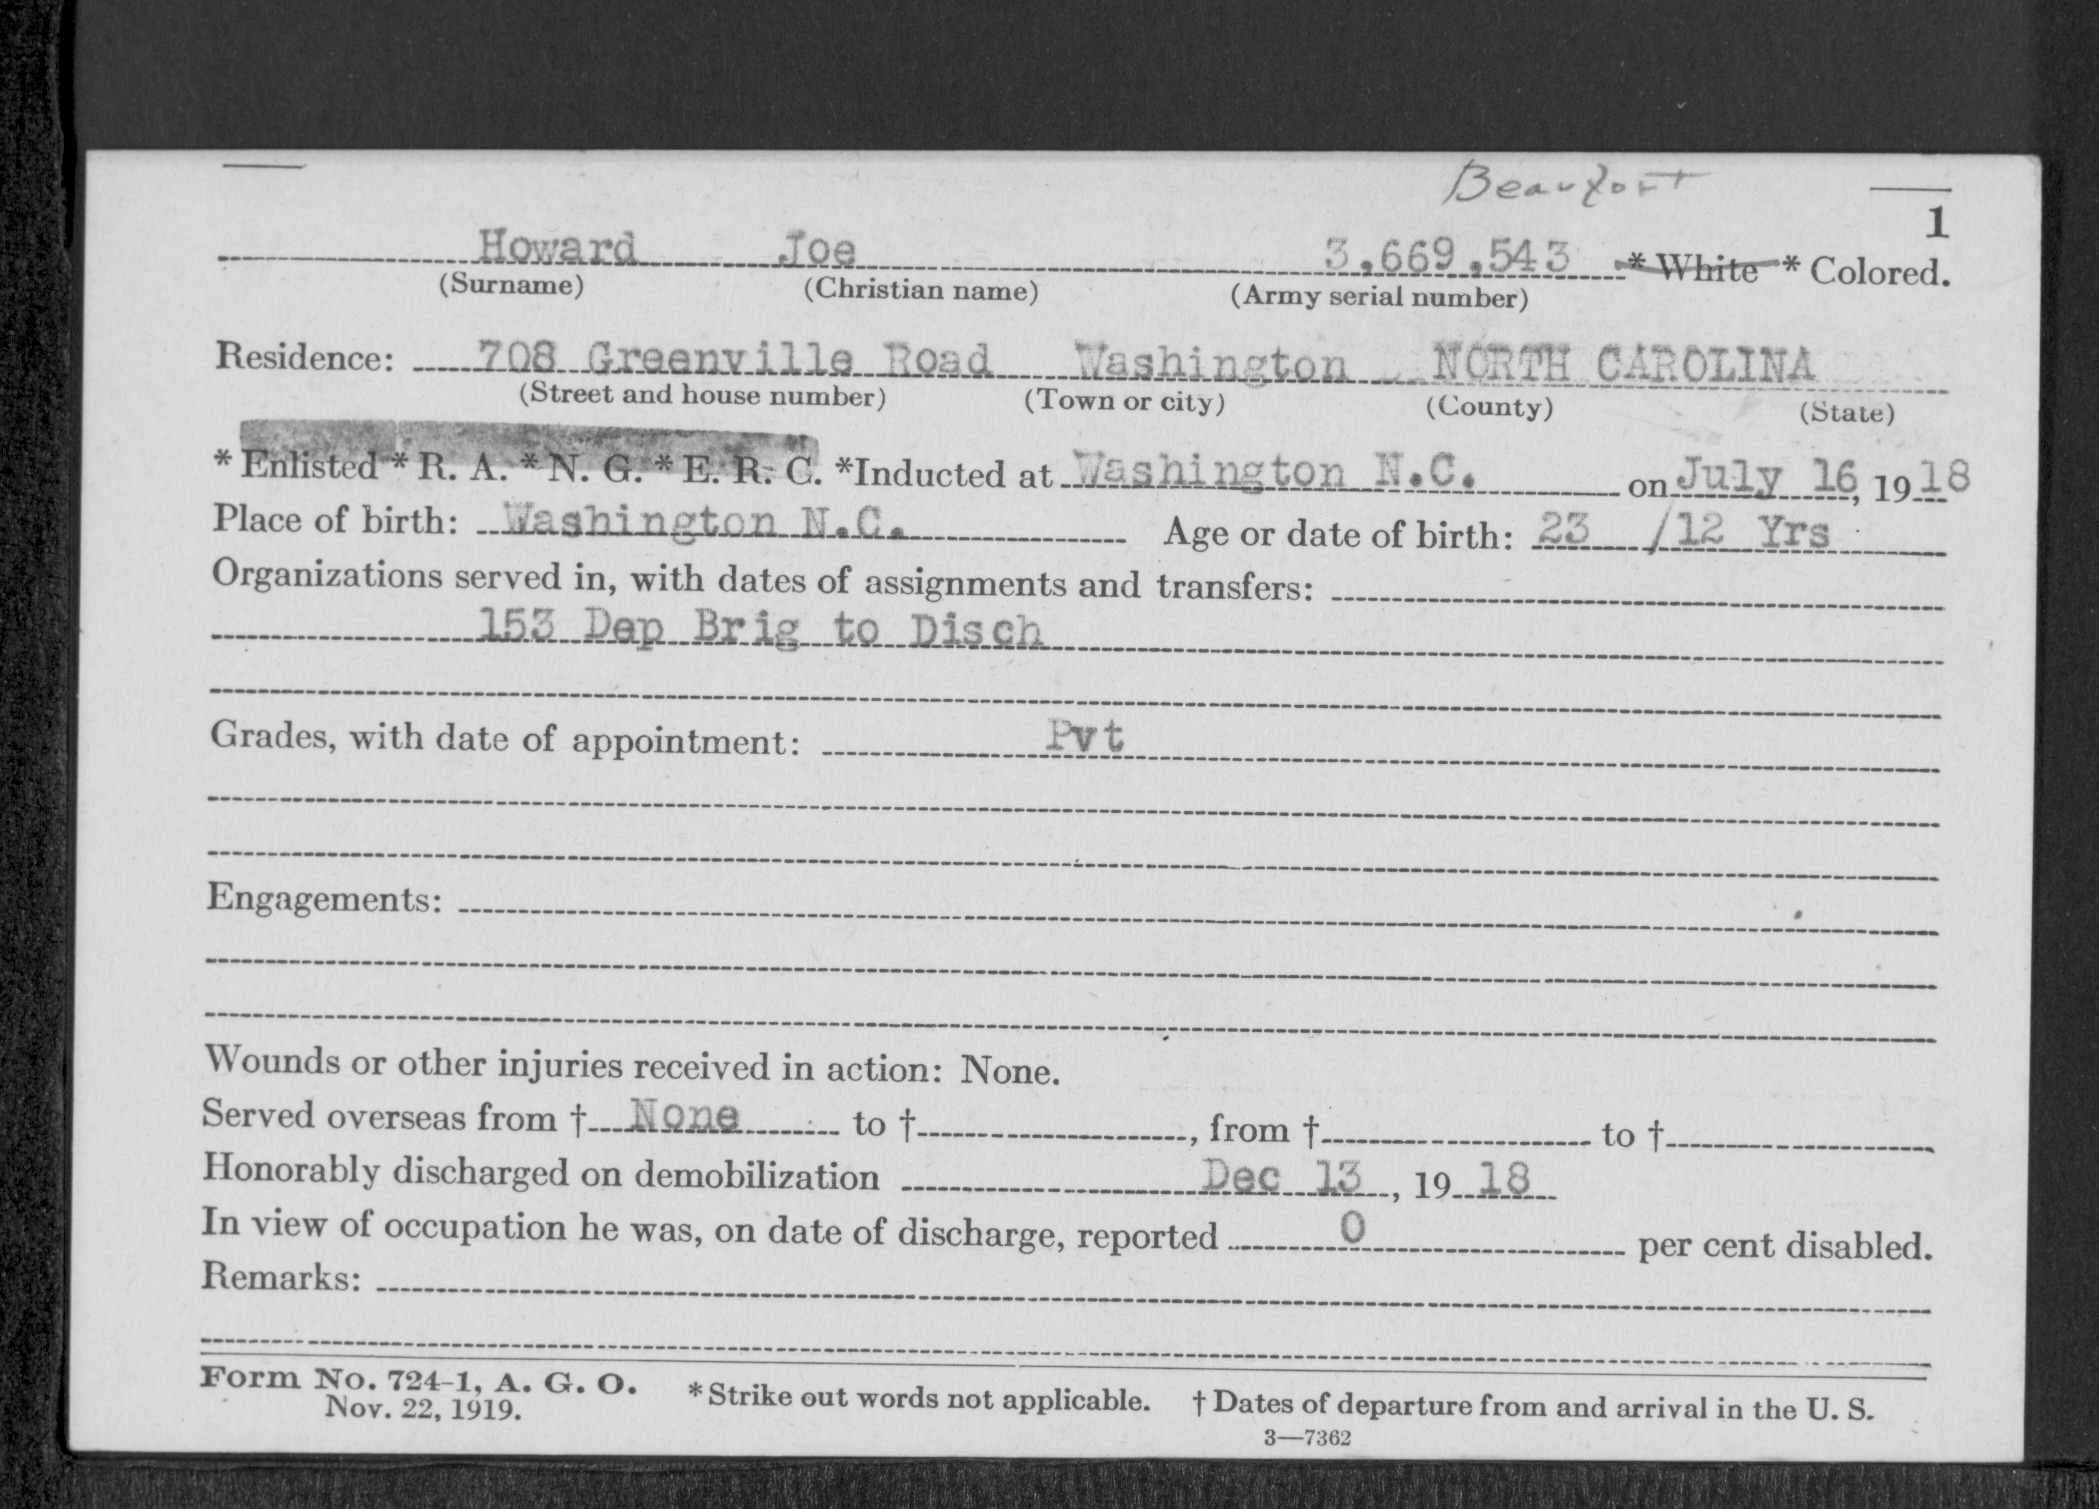 Beaufort
1
Howard Joe 3,669,543 * White * Colored.
(Surname) (Christian name) (Army serial number)
Residence: 708 Greenville Road Washington NORTH CAROLINA
(Street and house number) (Town or city) (County) (State)
* Enlisted * R. A. * N. G. * E. R. C. *Inducted at Washington N.C. on July 16, 1918
Place of birth: Washington N.C. Age or date of birth: 23 /12 Yrs
Organizations served in, with dates of assignments and transfers:
153 Dep Brig to Disch
Grades, with date of appointment: Pvt
Engagements:
Wounds or other injuries received in action: None.
Served overseas from † None to †, from † to †
Honorably discharged on demobilization Dec 13, 19 18
In view of occupation he was, on date of discharge, reported 0 per cent disabled.
Remarks:
Form No. 724-1, A. G. O. * Strike out words not applicable. † Dates of departure from and arrival in the U. S.
Nov. 22, 1919.
3—7362